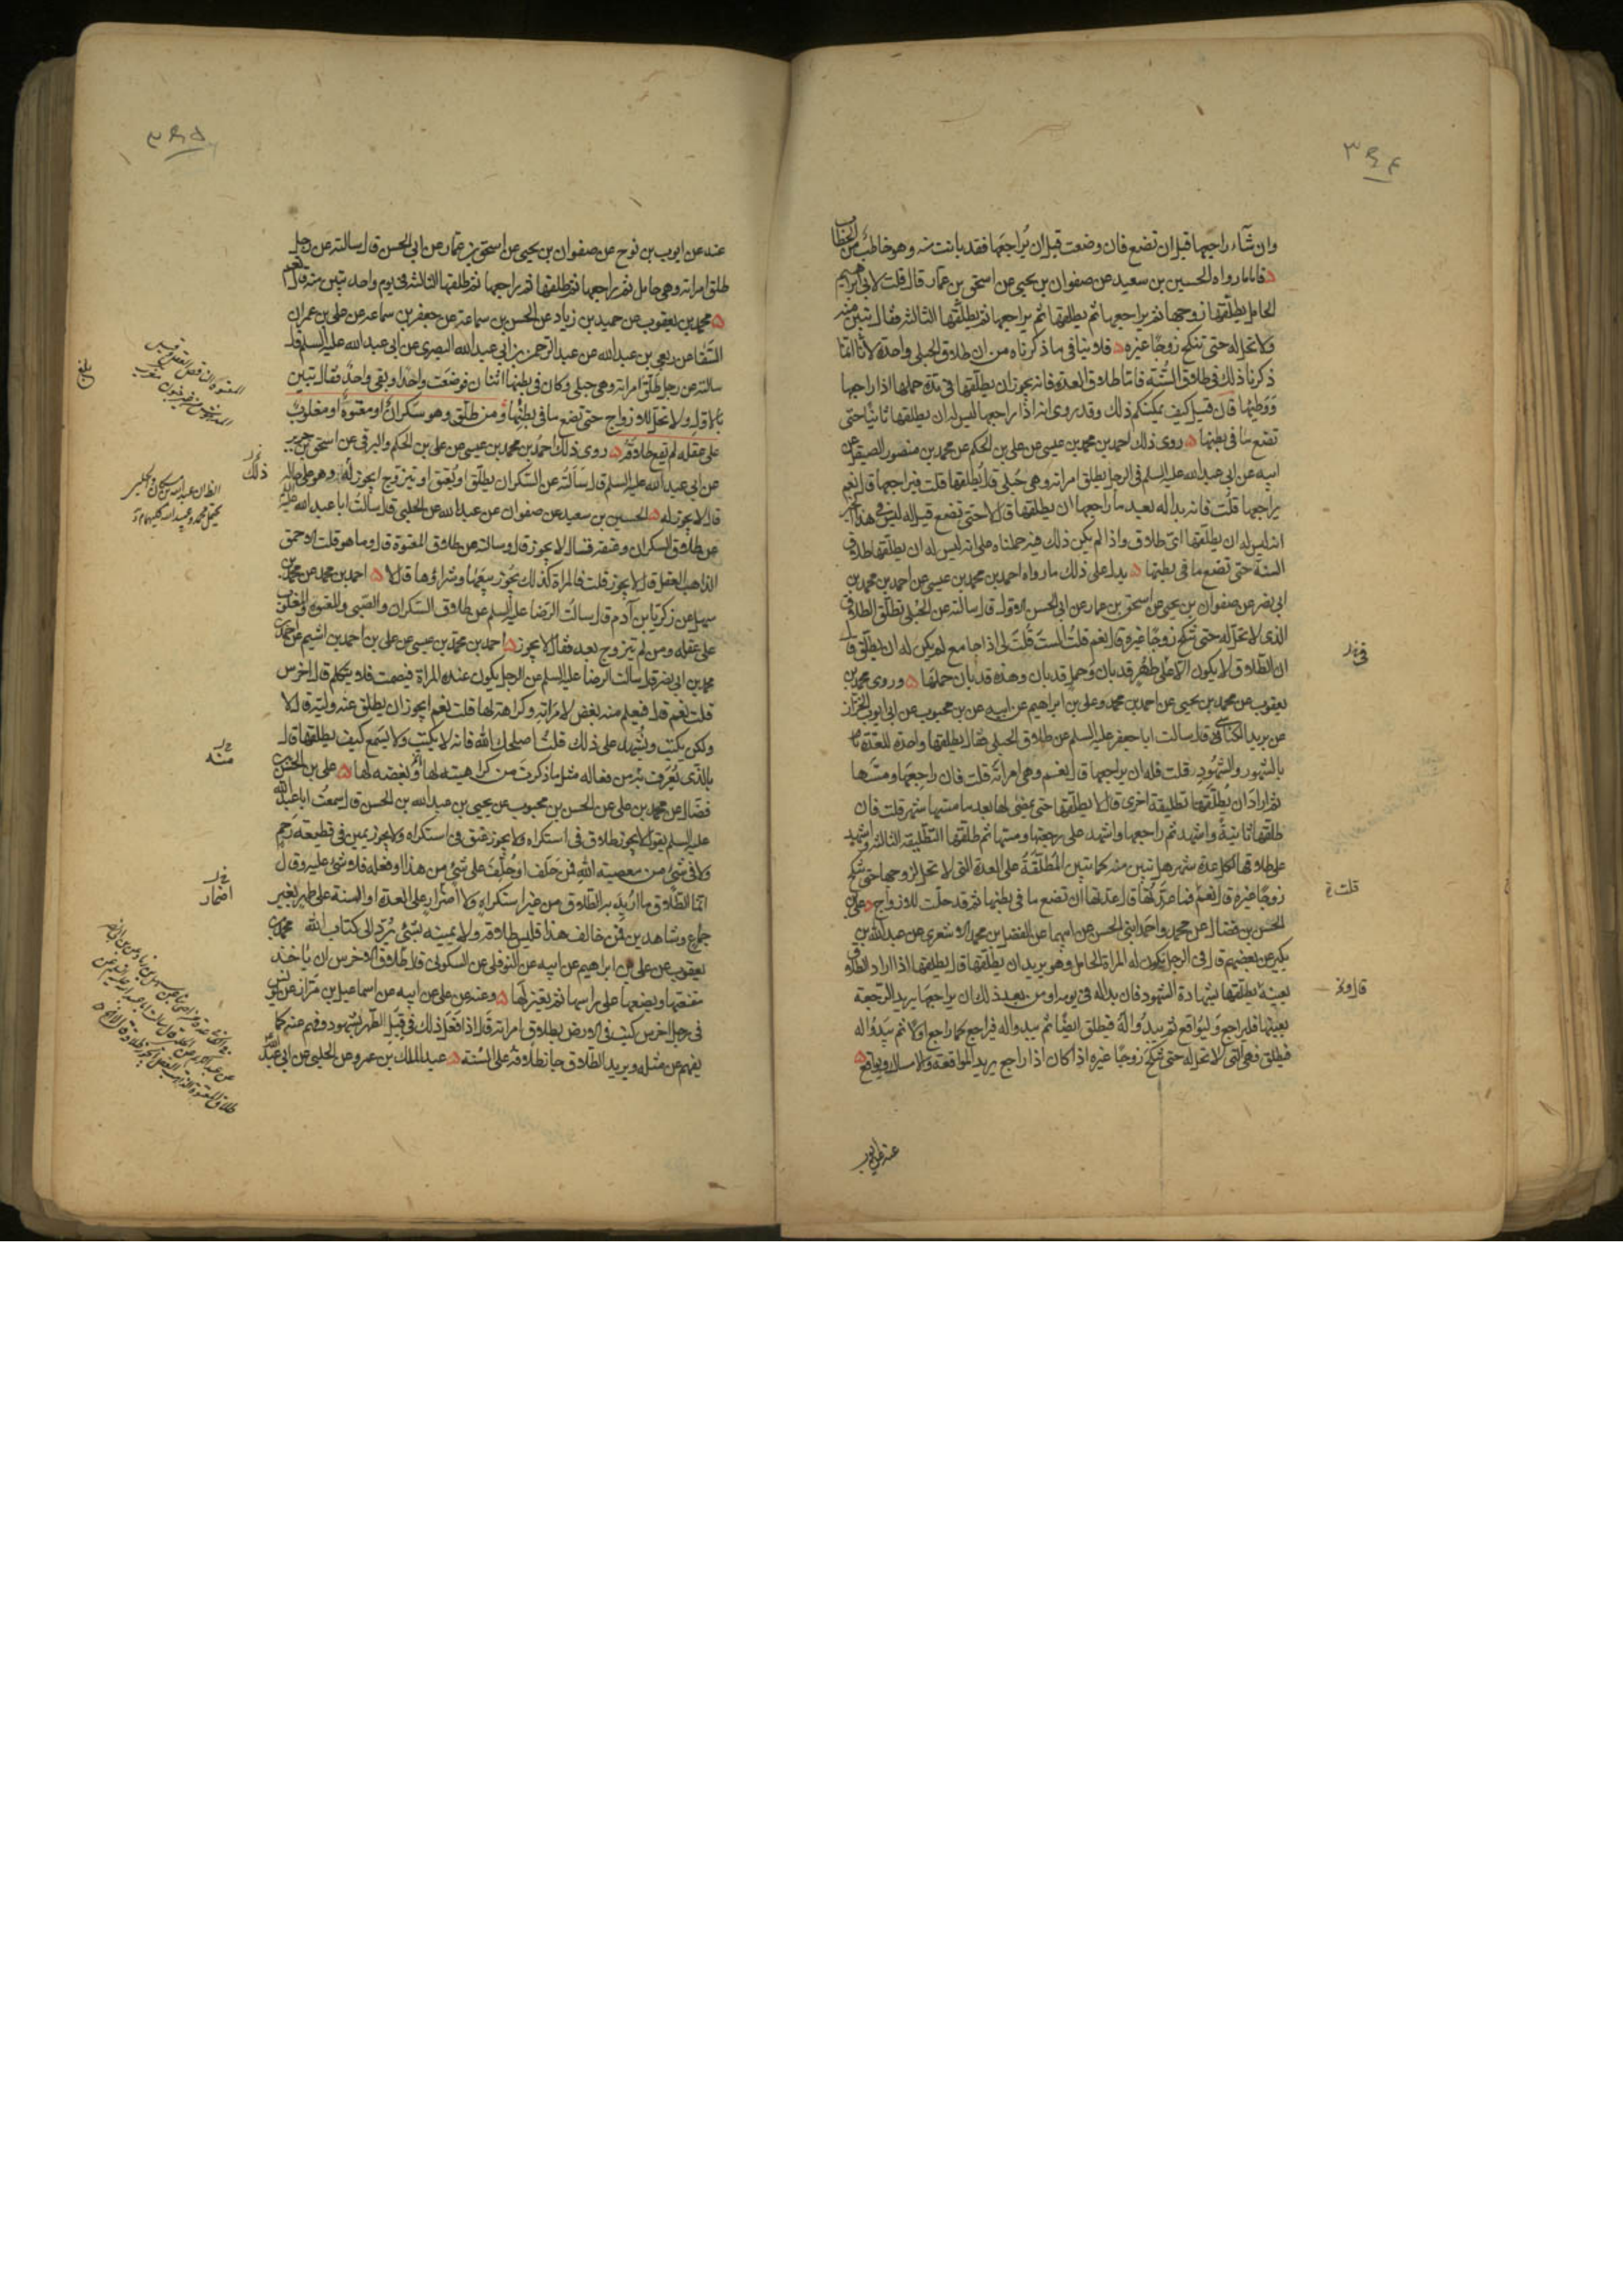 ٣٩٤
وان شآء راجعها قبل ان تضع فان وضعت قبل ان يُراجعها فقد بانت منه وهو خاطب من الخطاب
فاما ما رواه الحسين بن سعيد عن صفوان بن يحيى عن اسحق بن عمار قال قلت لابي ابرهيم
الحامل يطلقها زوجها ثم يراجعها ثم يطلقها ثم يراجعها ثم يطلقها الثالثة فقال تبين منه
ولا تحل له حتى تنكح زوجًا غيره فلا ينافي ما ذكرناه من ان طلاق الحبلى واحدة لأنا انما
ذكرنا ذلك في طلاق السُّنة فاما طلاق العدة فانه يجوز ان يطلقها في مدة حملها اذا راجعها
ووطئها فان قيل كيف يمكنكم ذلك وقد روى انه اذا راجعها ليس له ان يطلقها ثانيًا حتى
تضع ما في بطنها روى ذلك احمد بن محمد بن عيسى عن علي بن الحكم عن محمد بن منصور الصيقل عن
ابيه عن ابي عبد الله عليه السلم في الرجل يطلق امراته وهي حُبلى قال يُطلقها قلت فيراجعها قال نعم
يراجعها قلت فانه بدا له بعد ما راجعها ان يطلقها قال لا حتى تضع قيل له ليس في هذا الخبر
انه ليس له ان يطلقها اىّ طلاق واذا لم يكن ذلك فيه حملناه على انه ليس له ان يطلقها طلاق
السنة حتى تضع ما في بطنها يدل على ذلك ما رواه احمد بن محمد بن عيسى عن احمد بن محمد بن
ابي نصر عن صفوان بن يحيى عن اسحق بن عمار عن ابي الحسن الاول قال سالته عن الحُبلى تطلق الطلاق
الذى لا تحل له حتى تنكح زوجًا غيره قال نعم قلتُ ألستَ قُلتَ لى اذا جامع لم يكن له ان يطلق قال
ان الطلاق لا يكون الا على طهر قد بان وحمل قد بان وهذه قد بان حملها وروى محمد بن
يعقوب عن محمد بن يحيى عن احمد بن محمد وعلي بن ابراهيم عن ابيه عن بن محبوب عن ابي ايوب الخزاز
عن يزيد الكناسي قال سالت ابا جعفر عليه السلم عن طلاق الحبلى فقال يطلقها واحدة للعدة
بالشهور والشهُود قلت فله ان يراجعها قال نعم وهي امراته قلت فان راجعها ومسّها
ثم اراد ان يُطلّقها تطليقة اخرى قال لا يطلّقها حتى يمضى لها بعد ما مسها شهر قلت فان
طلقها ثانيةً واشهد ثم راجعها واشهد على رجعتها ومسها ثم طلقها التطليقة الثالثة واشهد
على طلاقها لكل عدة شهر هل تبين منه كما تبين المُطلّقةُ على العدة التي لا تحل لزوجها حتى تنكح
زوجًا غيره قال نعم قلت فما عدّتُها قال عدتها ان تضع ما في بطنها ثم قد حلت للازواج علي بن
الحسن بن فضال عن محمد واحمد ابني الحسن عن ابيهما عن الفضل بن محمد الاشعري عن عبد الله بن
بكير عن بعضهم قال في الرجل تكون له المراة الحامل وهو يريد ان يطلقها قال يطلقها اذا اراد الطلاق
بعينه يطلقها بشهادة الشهود فان بدا له في يومه او من بعد ذلك ان يراجعها يريد الرّجعة
بعينها فليراجع وليُواقع ثم يبدُوا لهُ فيطلق ايضًا ثم يبدوا له فيراجع كما راجع اولا ثم يبدُوا له
فيطلق فهي التي لا تحل له حتى تنكح زوجًا غيره اذا كان اذا راجع يريد المواقعة والامساك ويواقع
قلت
عنه عن ايوب
٣٩٥
عنه عن ايوب بن نوح عن صفوان بن يحيى عن اسحق بن عمار عن ابي الحسن قال سالته عن رجل
طلق امراته وهي حامل ثم راجعها ثم طلقها ثم راجعها ثم طلقها الثالثة في يوم واحد تبين منه قال نعم
محمد بن يعقوب عن حميد بن زياد عن الحسن بن سماعة عن جعفر بن سماعة عن علي بن عمران
الشفا عن ربعي بن عبد الله عن عبد الرحمن بن ابي عبد الله البصري عن ابي عبد الله عليه السلم قال
سالته عن رجل طلّق امراته وهي حبلى وكان في بطنها اثنان فوضعت واحدًا وبقى واحدٌ فقال تبين
بالاول ولا تحل للازواج حتى تضع ما في بطنها ومن طلق وهو سكرانٌ او معتوهٌ او مغلوب
على عقله لم يقع طلاقه روى ذلك احمد بن محمد بن عيسى عن علي بن الحكم والبرقي عن اسحق بن جرير
عن ابي عبد الله عليه السلم قال سَألتُه عن السكران يطلّق او يُعتق او يتزوج ايجوز لهُ وهو على حاله
قال لا يجوز له الحسين بن سعيد عن صفوان عن عبد الله عن الحلبي قال سألت ابا عبد الله عليه
عن طلاق السكران وعتقه فقال لا يجوز قال وسالته عن طلاق المعتوه قال وما هو قلت الاحمق
الذاهب العقل قال لا يجوز قلت فالمراة كذلك يَجُوز بيعُها وشراؤها قال لا احمد بن محمد عن محمد بن
سهل عن زكريا بن آدم قال سالت الرضا عليه السلم عن طلاق السكران والصّبى والمعتوه والمغلوب
على عقله ومن لم يتزوج بعد فقال لا يجوز احمد بن محمد بن عيسى عن علي بن احمد بن اشيم عن احمد بن
محمد بن ابي نصر قال سالت الرضا عليه السلم عن الرجل يكون عنده المراة فيصمت فلا يتكلم قال اخرس
قلت نعم قال فيعلم منه بغض لامَرَاته وكراهته لها قلت نعم ايجوز ان يطلق عنه وليّه قال لا
ولكن يكتب ويُشهد على ذلك قلتُ اصلحك الله فانه لا يكتب ولا يسمع كيف يطلقها قال
بالذى يُعرَف به من فعاله مثل ما ذكرتَ من كراهيته لها او بُغضه لها علي بن الحسن بن
فضال عن محمد بن علي عن الحسن بن محبوب عن يحيى بن عبد الله بن الحسن قال سمعتُ ابا عبد الله
عليه السلم يقول لا يجوز طلاق في استكراه ولا يجوز عتق في استكراه ولا يجوز يمين في قطيعة رحم
ولا في شيء من معصية الله فمن حَلف او حُلّف على شيء من هذا وفعله فلا شيء عليه وقال
انما الطلاق ما اُريد به الطلاق من غير استكراهٍ ولا اضرار على العدة او السنة على طهر بغير
جماع وشاهدين فمن خالف هذا فليس طلاقه ولا يمينه بشيء يُرَدّ الى كتاب الله محمد بن
يعقوب عن علي بن ابراهيم عن ابيه عن النوفلي عن السكوني قال طلاق الاخرس ان ياخذ
مقنعتها ويضعها على راسها ثم يعتزلها وعنه عن علي عن ابيه عن اسماعيل بن مرّار عن يونس
في رجل اخرس كتب في الارض بطلاق امراته قال اذا فعل ذلك في قُبُل الطُّهر بشهود وفهم عنه كما
يفهم عن مثله ويريد الطلاق جاز طلاقه على السُّنة عبد الملك بن عمرو عن الحلبي عن ابي عبد الله
ذلك
منه
اضمار